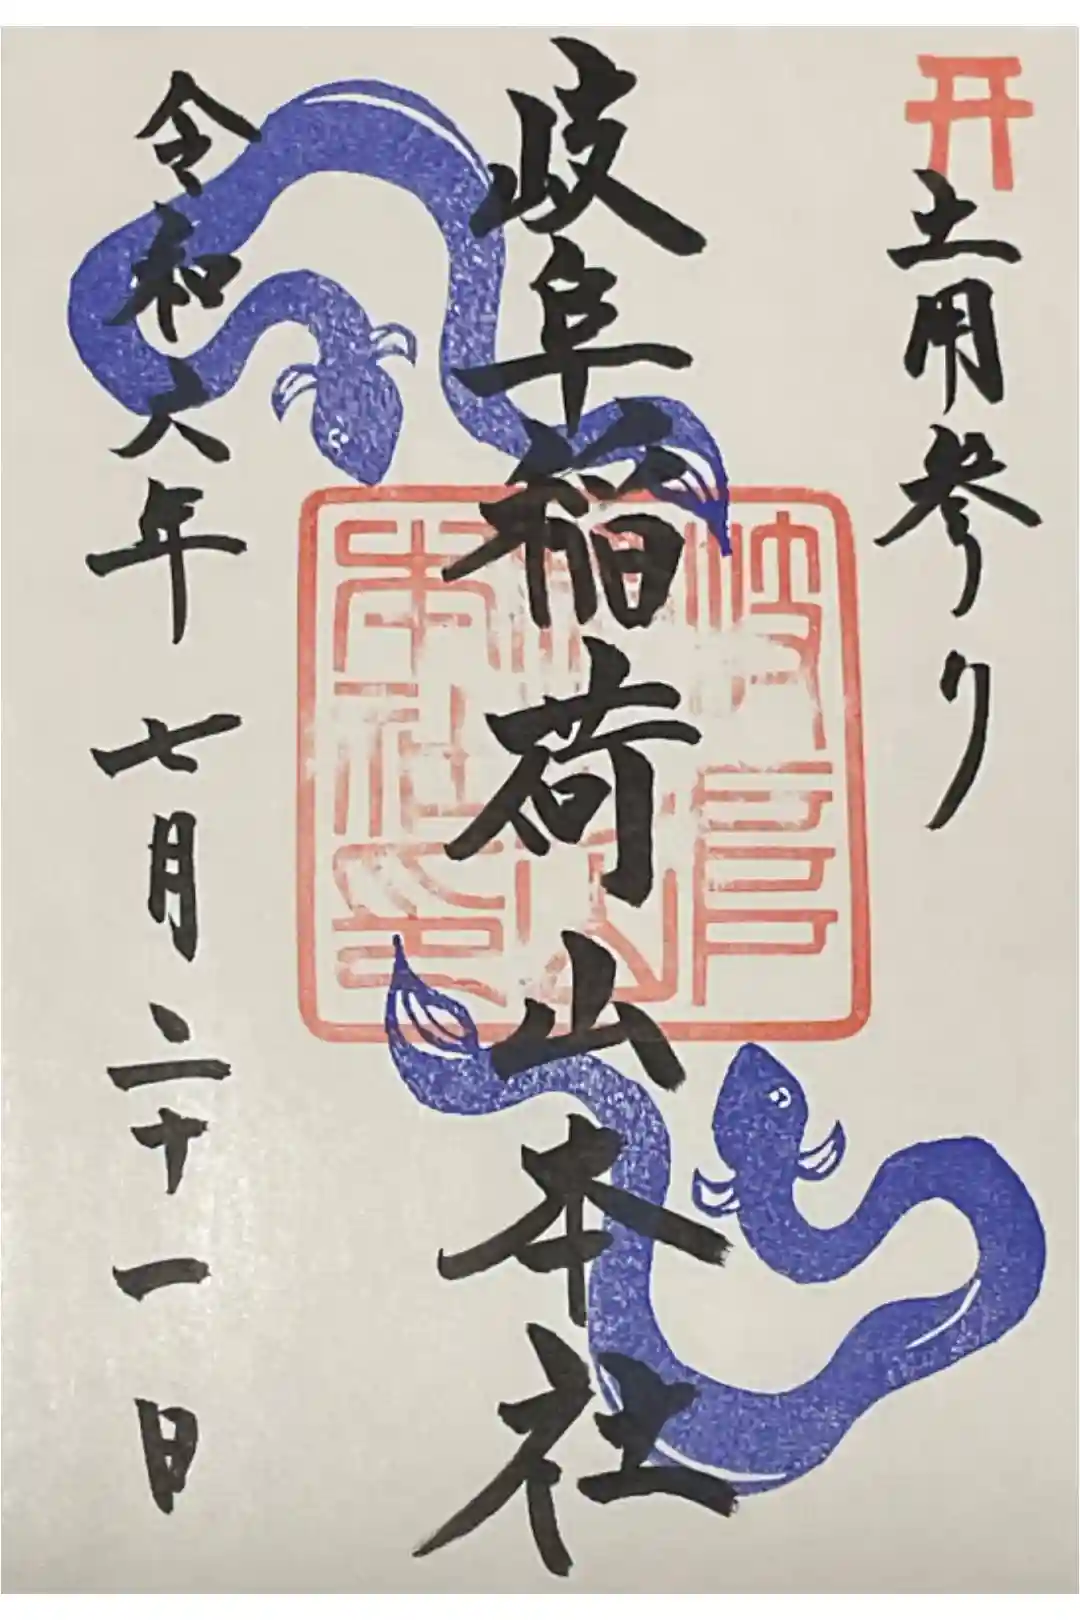 土用参り
岐阜稲荷山本社
岐阜
稲荷山
本社印
令和六年 七月二十一日